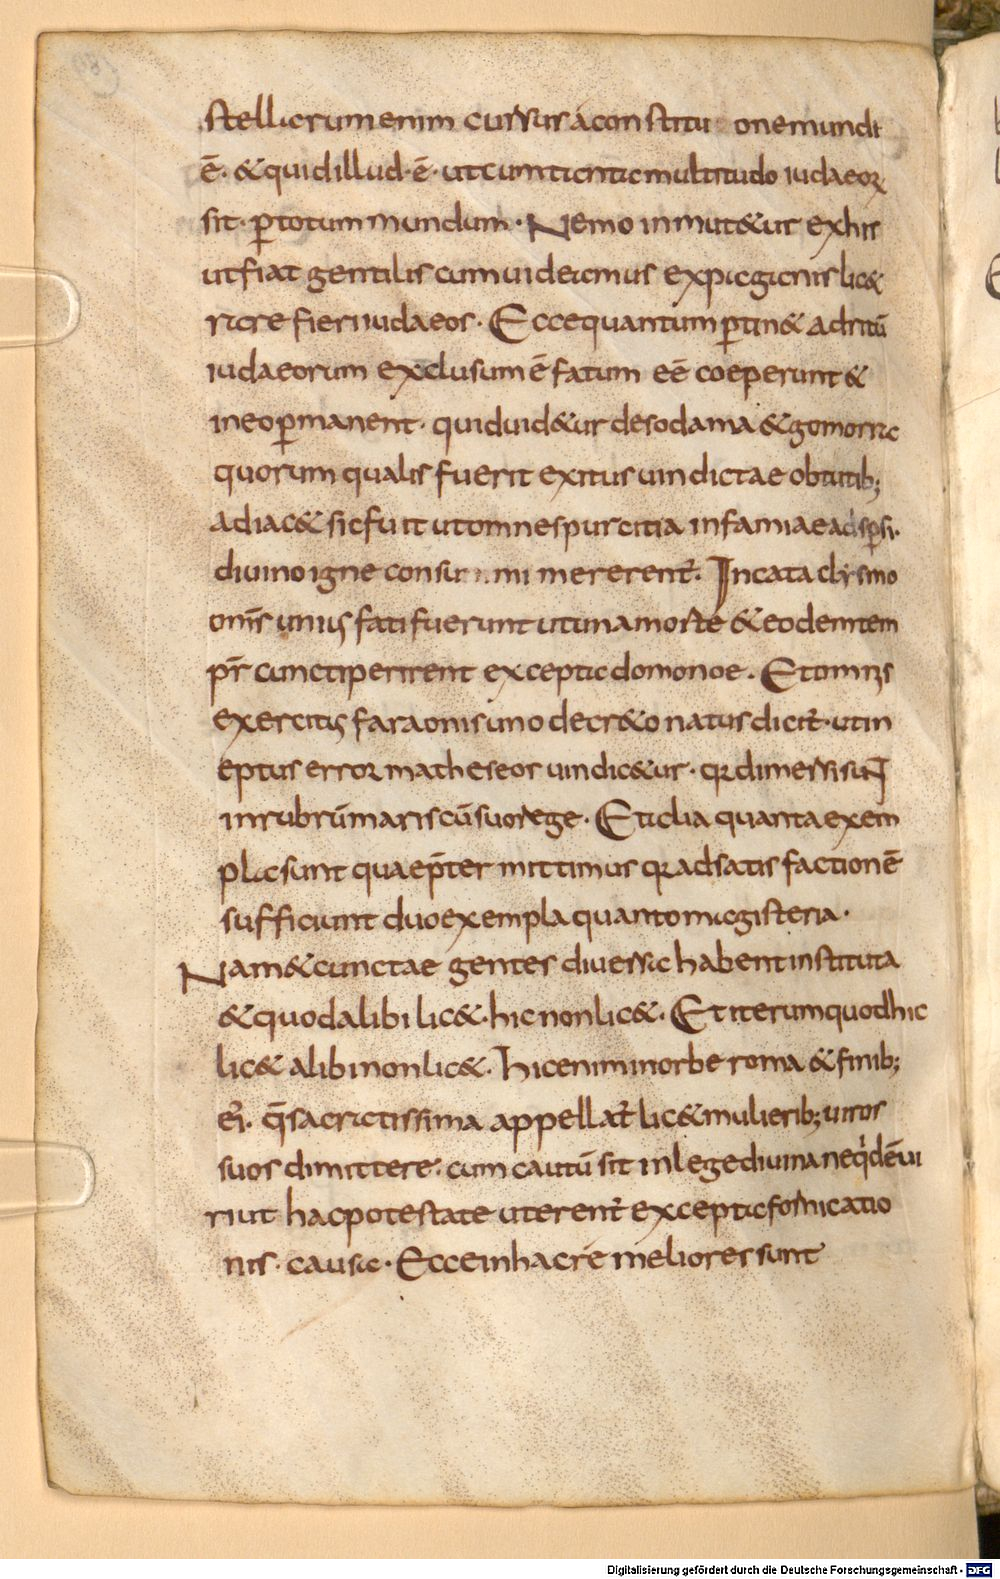 stellarum enim cursus a constitu onemundi
ē. & quid illud ē. ut cum tanta multitudo iudaeoꝝ
sit. ꝑ totum mundum. Nemo inmut&ur ex his
ut fiat gentilis cum uideamus ex paganis lic&
raro fieri iudaeos. Ecce quantum ꝑtin& ad ritū
iudaeorum exclusum ē fatum eē coeperunt &
in eo ꝑmanent. quid uid&ur de sodama & gomorra
quorum qualis fuerit exitus uindictae obtutib;
adiac& sic fuit ut omnes purcitia infamiae adsꝑsi.
diuino igne consu mi mererent̄. In cataclysmo
om̄s unius fati fuerunt ut una morte & eodem tem
pr̄ cuncti perirent excepta domo noe. Et omnis
exercitus faraonis uno decr&o natus dicit̄. ut in
eptus error matheseos uindic&ur. qꝛ dimersi sunt
in rubrū maris cū suo rege. Et alia quanta exem
pla sunt quae p̄termittimus qꝛ ad satisfactionē
sufficiunt duo exempla quanto magisteria.
Nam & cunctae gentes diuersa habent instituta
& quod alibi lic&. hic non lic&. Et iterum quod hic
lic& alibi non lic&. hic enim in orbe roma & finib;
ei. q̄ sacratissima appellat̄ lic& mulierib; uiros
suos dimittere. cum cautū sit in lege diuina ne qͥdē ui
ri ut hac potestate uterent̄ excepta fornicatio
nis causa. Ecce in hac rē meliores sunt
Digitalisierung gefördert durch die Deutsche Forschungsgemeinschaft - DFG